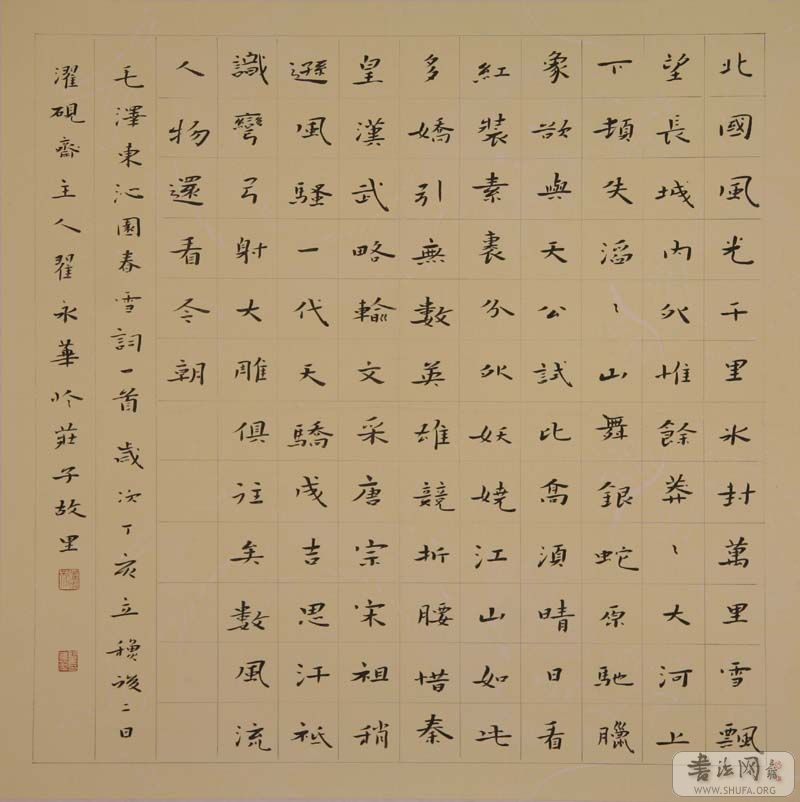 北國風光千里冰封萬里雪飄
望長城內外惟餘莽〻大河上
下頓失滔〻山舞銀蛇原馳臘
象欲與天公試比高須晴日看
紅裝素裹分外妖嬈江山如此
多嬌引無數英雄競折腰惜秦
皇漢武略輸文采唐宗宋祖稍
遜風騷一代天驕成吉思汗祗
識彎弓射大雕俱往矣數風流
人物還看今朝
毛澤東沁園春雪詞一首 歲次丁亥立穐後二日
濯硯齋主人翟永華於莊子故里
書法网
WWW.SHUFA.ORG